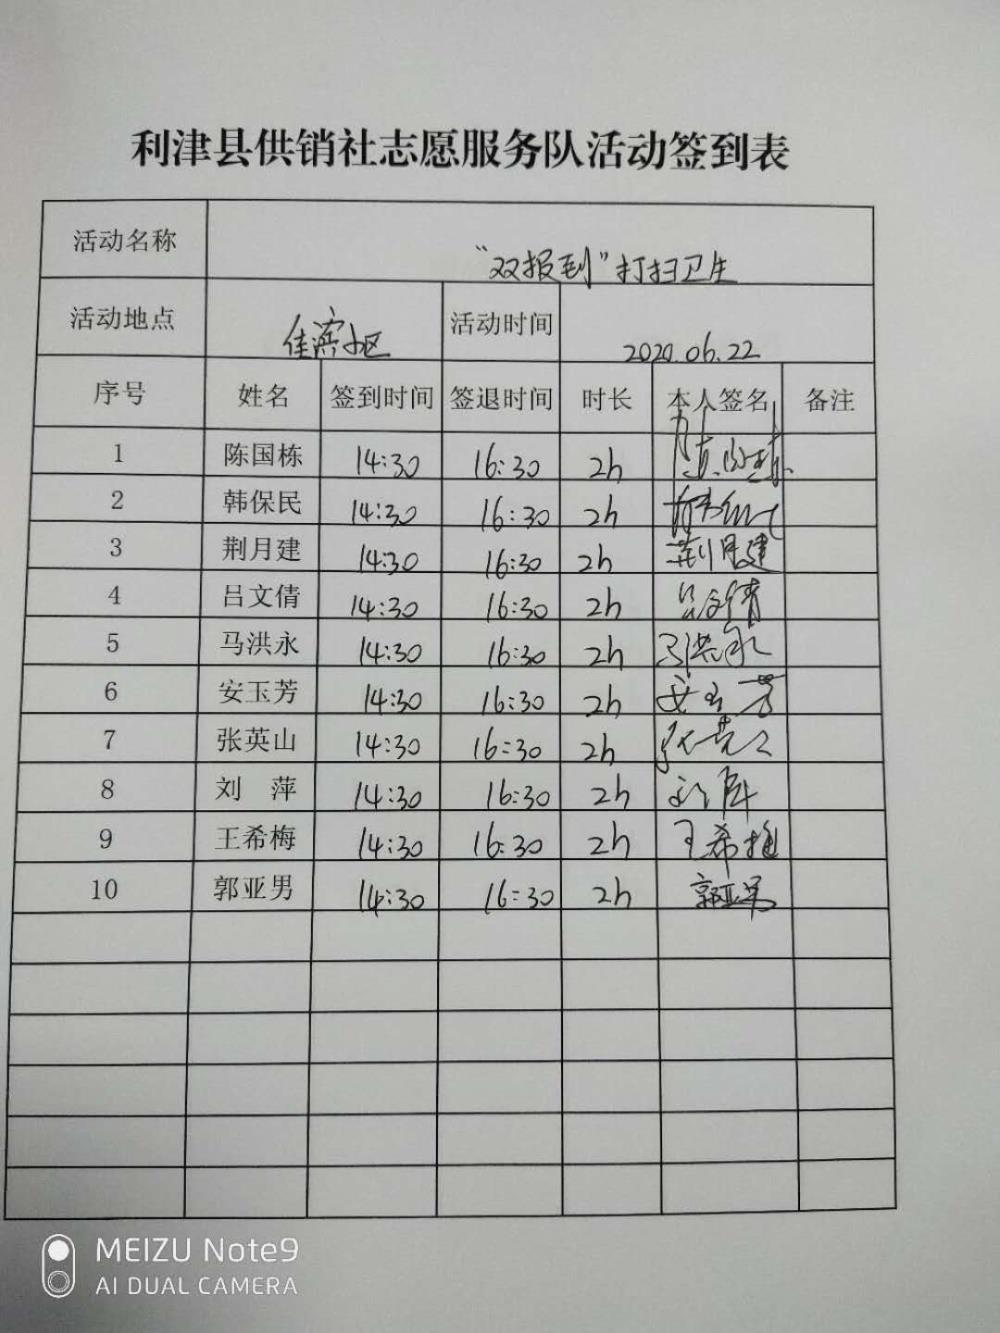 利津县供销社志愿服务队活动签到表
活动名称 “双报到”打扫卫生
活动地点 佳滨小区 活动时间 2020.06.22
序号 姓名 签到时间 签退时间 时长 本人签名 备注
1 陈国栋 14:30 16:30 2h 陈国栋
2 韩保民 14:30 16:30 2h
3 荆月建 14:30 16:30 2h 荆月建
4 吕文倩 14:30 16:30 2h 吕文倩
5 马洪永 14:30 16:30 2h 马洪永
6 安玉芳 14:30 16:30 2h 安玉芳
7 张英山 14:30 16:30 2h 张英山
8 刘 萍 14:30 16:30 2h 刘萍
9 王希梅 14:30 16:30 2h 王希梅
10 郭亚男 14:30 16:30 2h 郭亚男
MEIZU Note9
AI DUAL CAMERA